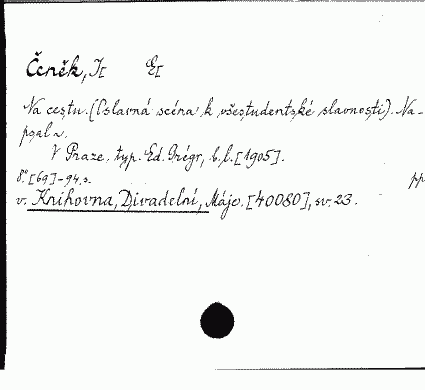 Čeněk, J[ E[
Na cestu. (Oslavná scéna k všestudentské slavnosti). Na-
psal ~.
V Praze. typ. Ed. Grégr, b. l. [1905].
8° [69]-94. s. pp
v. Knihovna, Divadelní, Máje. [40080], sv. 23.